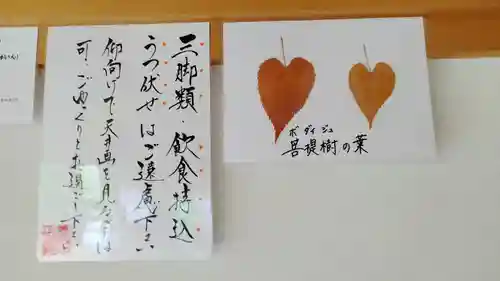 三脚類・飲食持込
うつ伏せはご遠慮下さい
仰向けで天井画を見るのは
可。ごゆっくりとお過ごし下さい
ボダイジュ
菩提樹の葉